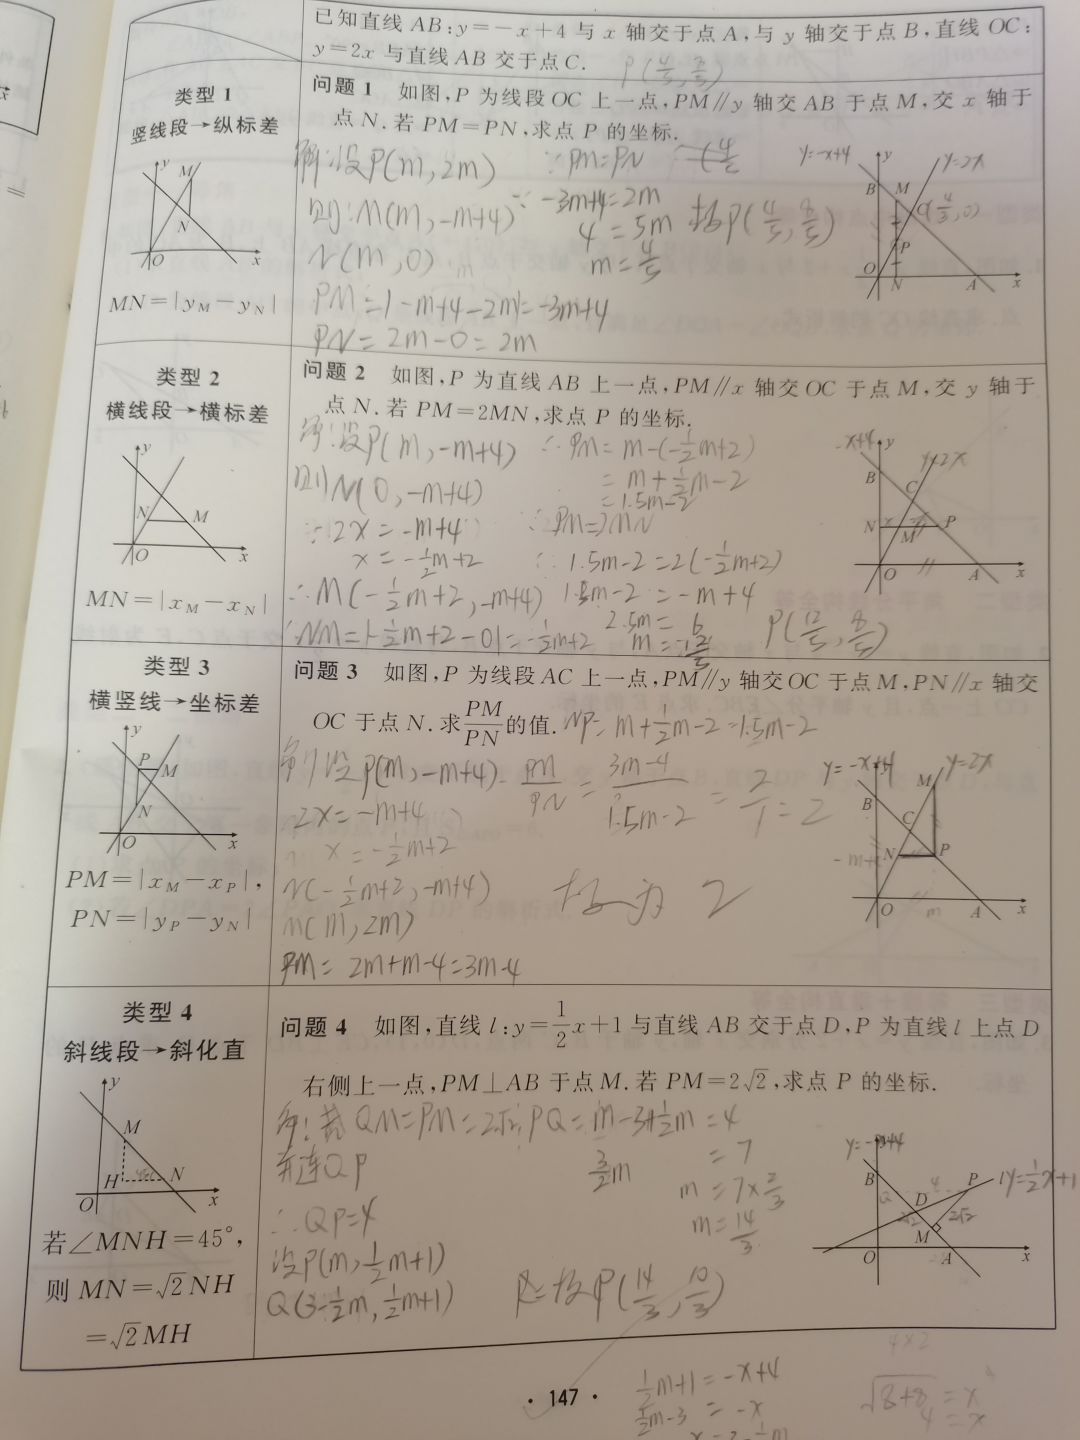 已知直线 AB:y=-x+4 与 x 轴交于点 A,与 y 轴交于点 B,直线 OC:
y=2x 与直线 AB 交于点 C.
P(4/5,8/5)
类型 1
竖线段→纵标差
y
M
N
O
x
MN=|y_M-y_N|
问题 1 如图,P 为线段 OC 上一点,PM∥y 轴交 AB 于点 M,交 x 轴于
点 N.若 PM=PN,求点 P 的坐标.
解:设P(m,2m)
则:M(m,-m+4)
N(m,0)
PM=|-m+4-2m|=-3m+4
PN=2m-0=2m
∵PM=PN
∵-3m+4=2m
4=5m
m=4/5
故P(4/5,8/5)
y=-x+4
y
y=2x
B
M
P
O
N
A
x
类型 2
横线段→横标差
y
N
M
O
x
MN=|x_M-x_N|
问题 2 如图,P 为直线 AB 上一点,PM∥x 轴交 OC 于点 M,交 y 轴于
点 N.若 PM=2MN,求点 P 的坐标.
解:设P(m,-m+4)
则N(0,-m+4)
∵2x=-m+4
x=-1/2m+2
∴M(-1/2m+2,-m+4)
∴NM=|-1/2m+2-0|=-1/2m+2
∴PM=m-(-1/2m+2)
=m+1/2m-2
=1.5m-2
∵PM=2MN
∴1.5m-2=2(-1/2m+2)
1.5m-2=-m+4
2.5m=6
P(12/5,8/5)
-x+4
y
y=2x
B
C
N
M
P
O
A
x
类型 3
横竖线→坐标差
y
P
M
N
O
x
PM=|x_M-x_P|,
PN=|y_P-y_N|
问题 3 如图,P 为线段 AC 上一点,PM∥y 轴交 OC 于点 M,PN∥x 轴交
OC 于点 N.求PM/PN的值.
NP=m+1/2m-2=1.5m-2
解:设P(m,-m+4)
2x=-m+4
x=-1/2m+2
N(-1/2m+2,-m+4)
M(m,2m)
PM=2m+m-4=3m-4
PM/PN=(3m-4)/(1.5m-2)=2/1=2
故为2
y=-x+4
y
y=2x
M
B
C
N
P
O
m
A
x
类型 4
斜线段→斜化直
y
M
H
45°
N
O
x
若∠MNH=45°,
则 MN=√2NH
=√2MH
问题 4 如图,直线 l:y=1/2x+1 与直线 AB 交于点 D,P 为直线 l 上点 D
右侧上一点,PM⊥AB 于点 M.若 PM=2√2,求点 P 的坐标.
QM=PM=2√2
并连QP
∴QP=4
设P(m,1/2m+1)
Q(3-1/2m,1/2m+1)
PQ=m-3+1/2m=4
3/2m=7
m=7×2/3
m=14/3
故P(14/3,10/3)
y=-x+4
y
B
Q
4
P
l
y=1/2x+1
D
2√2
2√2
M
O
A
x
· 147 ·
1/2m+1=-x+4
1/2m-3=-x
4×2
√8+8=x
4=x